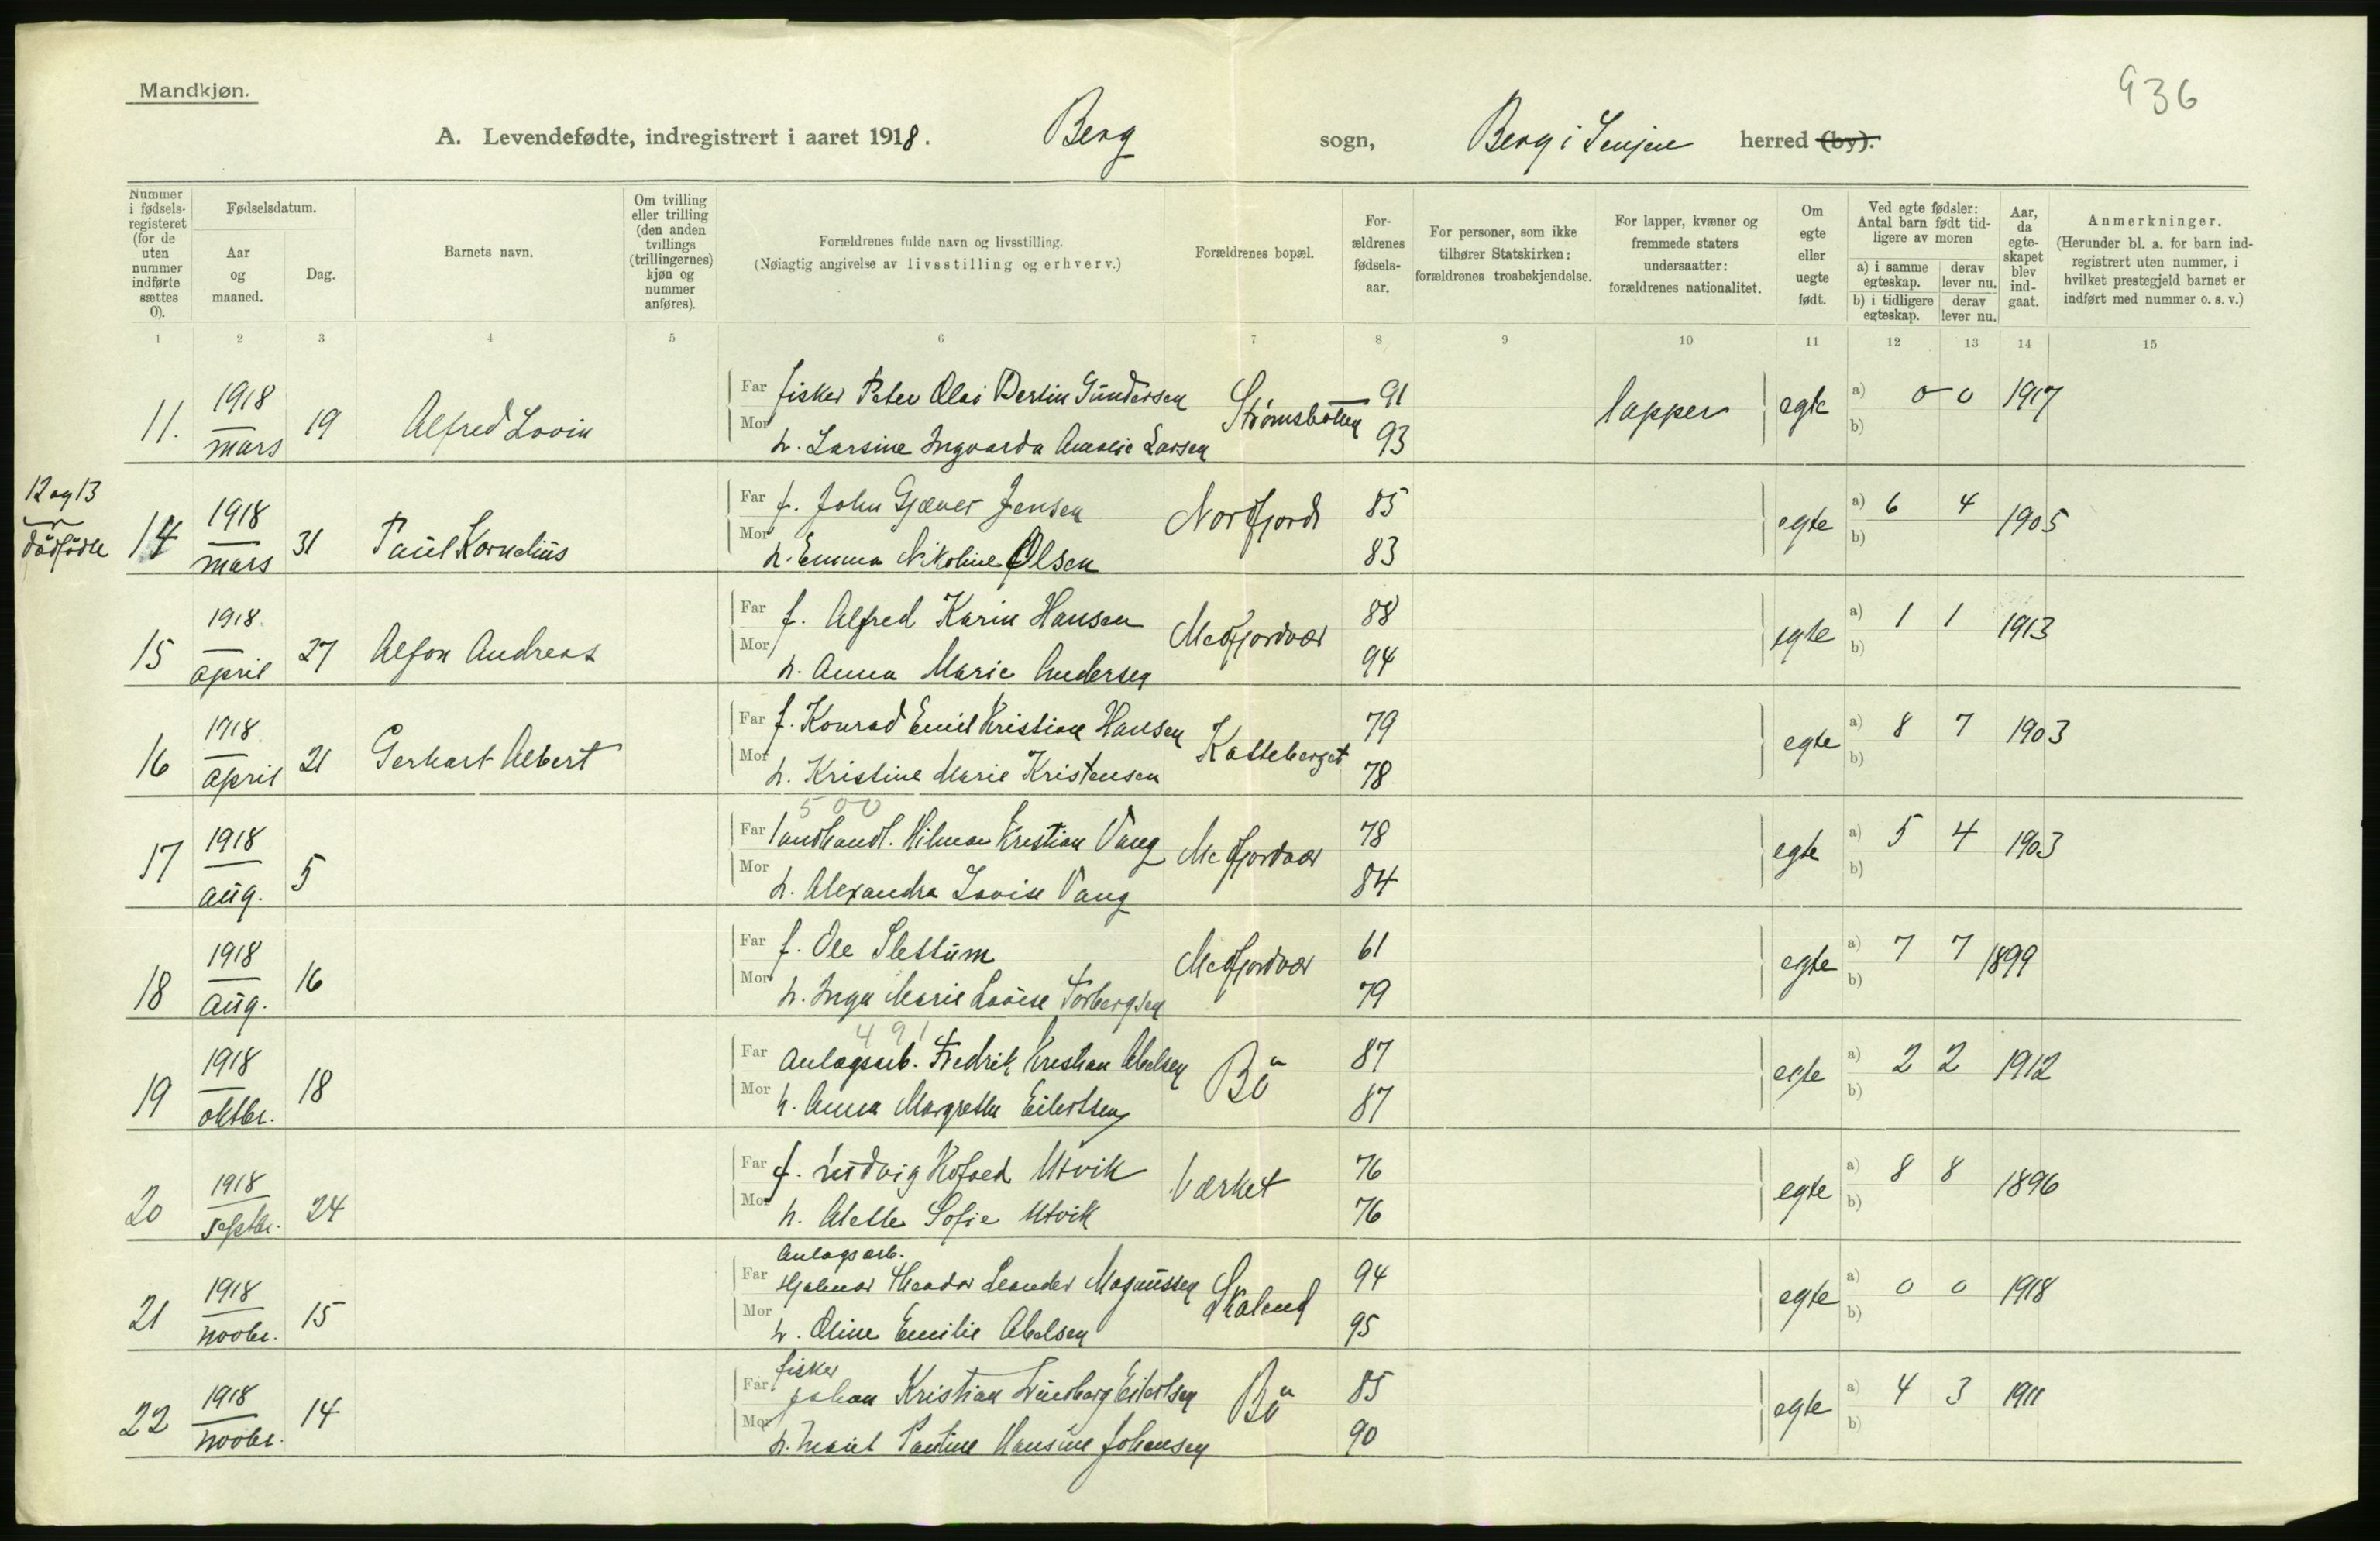 Mandkjøn.
936
A. Levendefødte, indregistrert i aaret 1918. Berg sogn, Berg i Senjen herred (by).
Nummer i fødsels-registeret (for de uten nummer indførte sættes 0).
Fødselsdatum.
Aar og maaned.
Dag.
Barnets navn.
Om tvilling eller trilling (den anden tvillings (trillingernes) kjøn og nummer anføres).
Forældrenes fulde navn og livsstilling.
(Nøiagtig angivelse av livsstilling og erhverv.)
Forældrenes bopæl.
For-ældrenes fødsels-aar.
For personer, som ikke tilhører Statskirken: forældrenes trosbekjendelse.
For lapper, kvæner og fremmede staters undersaatter: forældrenes nationalitet.
Om egte eller uegte født.
Ved egte fødsler: Antal barn født tid-ligere av moren
a) i samme egteskap. derav lever nu.
b) i tidligere egteskap. derav lever nu.
Aar, da egte-skapet blev ind-gaat.
Anmerkninger.
(Herunder bl. a. for barn ind-registrert uten nummer, i hvilket prestegjeld barnet er indført med nummer o. s. v.)
1 2 3 4 5 6 7 8 9 10 11 12 13 14 15
11. 1918 mars 19 Alfred Lovin
Far fisker Peter Olai Bertin Gundersen Strømsbotten 91 lapper egte a) 0 0 1917
Mor h. Larsine Ingvarda Amalie Larsen 93 b)
12 og 13 dødfødte
14 1918 mars 31 Paul Kornelius
Far f. John Gjæver Jensen Nordfjord 85 egte a) 6 4 1905
Mor h. Emma Nikoline Olsen 83 b)
15 1918 april 27 Alfon Andreas
Far f. Alfred Karin Hansen Mefjordvær 88 egte a) 1 1 1913
Mor h. Anna Marie Andersen 94 b)
16 1918 april 21 Gerhart Albert
Far f. Konrad Emil Kristian Hansen Katteberget 79 egte a) 8 7 1903
Mor h. Kristine Marie Kristensen 78 b)
500
17 1918 aug. 5
Far landhandl. Hilmar Kristian Vang Mefjordvær 78 egte a) 5 4 1903
Mor h. Alexandra Lovise Vang 84 b)
18 1918 aug. 16
Far f. Ole Slettum Mefjordvær 61 egte a) 7 7 1899
Mor h. Inga Marie Lovise Torbergsen 79 b)
491
19 1918 oktbr. 18
Far Anlægsarb. Fredrik Kristian Abelsen Bö 87 egte a) 2 2 1912
Mor h. Anna Margrethe Eilertsen 87 b)
20 1918 septbr. 24
Far f. Ludvig Kofoed Utvik Værket 76 egte a) 8 8 1896
Mor h. Alette Sofie Utvik 76 b)
21 1918 novbr. 15
Anlægsarb.
Far Hjalmar Theodor Leander Magnussen Skaland 94 egte a) 0 0 1918
Mor h. Oline Emilie Abelsen 95 b)
22 1918 novbr. 14
fisker
Far Johan Kristian Eilertsen Bö 85 egte a) 4 3 1911
Mor h. Pauline Hansine Johansen 90 b)